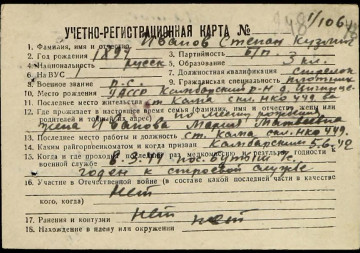 1/106
УЧЕТНО-РЕГИСТРАЦИОННАЯ КАРТА №
1. Фамилия, имя и отчество Иванов Степан Кузьмич
2. Год рождения 1897 3. Партийность б/п
4. Национальность русск 5. Образование 3 кл.
6. На ВУС 1 7. Должностная квалификация Стрелок
8. Военное звание р.с. 9. Гражданская специальность плотник
10. Место рождения УАССР Камбарский р-н д.
11. Последнее место жительства ст. Кама скл. НКО 449
12. Где проживает в настоящее время семья, фамилия, имя и отчество жену или родителей и адрес) по месту рождения
жена Иванова Мария
13. Последнее место работы и должность ст. Кама скл. НКО 449
14. Каким райгорвоенкоматом и когда призван Камбарским 5.6.42
15. Когда и где проходил раз медкомиссию и результат годности к
военной службе годен к строевой службе
16. Участие в Отечественной войне (в составе какой последней части в качестве
кого, когда) нет
17. Ранения и контузии нет нет
18. Нахождение в плену или окружении